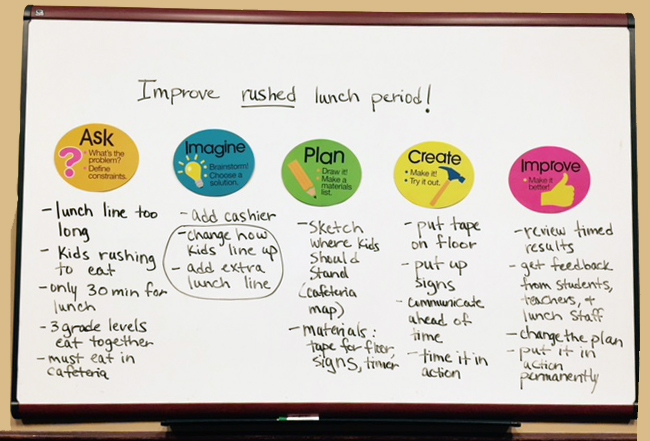 Improve rushed lunch period!
Ask
?
• What's the
problem?
• Define
constraints.
- lunch line too
long
- Kids rushing
to eat
- only 30 min for
lunch
- 3 grade levels
eat together
- must eat in
cafeteria
Imagine
• Brainstorm!
• Choose a
solution.
- add cashier
- change how
kids line up
- add extra
lunch line
Plan
• Draw it!
• Make a
materials
list.
- Sketch
where kids
should
stand
(cafeteria
map)
- materials:
tape for floor,
signs, timer
Create
• Make it!
• Try it out.
- put tape
on floor
- put up
signs
- communicate
ahead of
time
- time it in
action
Improve
• Make it
better!
- review timed
results
- get feedback
from students,
teachers, &
lunch staff
- change the plan
- put it in
action
permanently